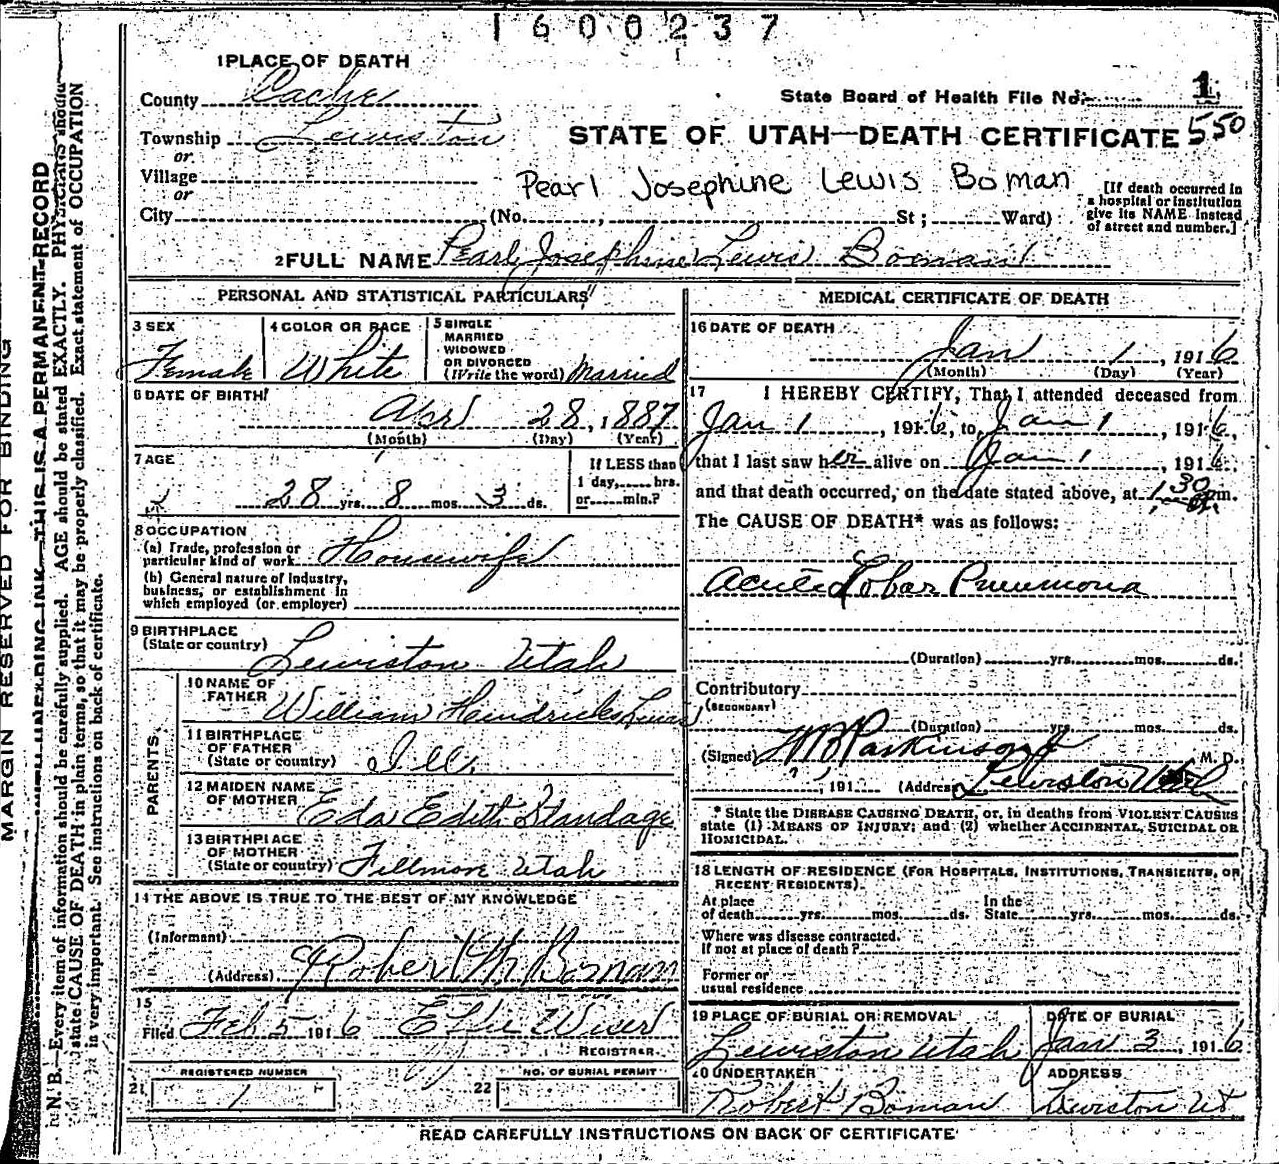 1600237
1 PLACE OF DEATH
County Cache
State Board of Health File No. 1
Township Lewiston
STATE OF UTAH—DEATH CERTIFICATE 550
or
Village
or
Pearl Josephine Lewis Boman
[If death occurred in
a hospital or institution
give its NAME instead
of street and number.]
City (No. , St ; Ward)
2 FULL NAME Pearl Josephine Lewis Boman
PERSONAL AND STATISTICAL PARTICULARS
3 SEX
Female
4 COLOR OR RACE
White
5 SINGLE
MARRIED
WIDOWED
OR DIVORCED
(Write the word) Married
6 DATE OF BIRTH
Apr 28, 1887
(Month) (Day) (Year)
7 AGE
28 yrs. 8 mos. 3 ds.
If LESS than
1 day, hrs.
or min.?
8 OCCUPATION
(a) Trade, profession or
particular kind of work Housewife
(b) General nature of industry,
business, or establishment in
which employed (or employer)
9 BIRTHPLACE
(State or country)
Lewiston Utah
PARENTS.
10 NAME OF
FATHER
William Hendricks Lewis
11 BIRTHPLACE
OF FATHER
(State or country) Ill.
12 MAIDEN NAME
OF MOTHER
Eda Edith Standage
13 BIRTHPLACE
OF MOTHER
(State or country) Fillmore Utah
14 THE ABOVE IS TRUE TO THE BEST OF MY KNOWLEDGE
(Informant)
(Address) Robert M Boman
15
Filed Feb 5 1916 Effie Wiser
REGISTRAR.
REGISTERED NUMBER
21 1
NO. OF BURIAL PERMIT
22
MEDICAL CERTIFICATE OF DEATH
16 DATE OF DEATH
Jan 1, 1916
(Month) (Day) (Year)
17 I HEREBY CERTIFY, That I attended deceased from
Jan 1, 1916, to Jan 1, 1916,
that I last saw her alive on Jan 1, 1916,
and that death occurred, on the date stated above, at 1 30 m.
The CAUSE OF DEATH* was as follows:
Acute Lobar Pneumonia
(Duration) yrs. mos. ds.
Contributory
(SECONDARY)
(Duration) yrs. mos. ds.
(Signed) W B Parkinson Jr M. D.
, 191 (Address) Lewiston Utah
* State the DISEASE CAUSING DEATH, or, in deaths from VIOLENT CAUSES
state (1) MEANS OF INJURY; and (2) whether ACCIDENTAL, SUICIDAL OR
HOMICIDAL.
18 LENGTH OF RESIDENCE (FOR HOSPITALS, INSTITUTIONS, TRANSIENTS, OR
RECENT RESIDENTS).
At place
of death yrs. mos. ds.
In the
State yrs. mos. ds.
Where was disease contracted.
If not at place of death?
Former or
usual residence
19 PLACE OF BURIAL OR REMOVAL
Lewiston Utah
DATE OF BURIAL
Jan 3, 1916
20 UNDERTAKER
Robert Boman
ADDRESS
Lewiston Ut
READ CAREFULLY INSTRUCTIONS ON BACK OF CERTIFICATE
MARGIN RESERVED FOR BINDING
UNFADING INK—THIS IS A PERMANENT RECORD
N. B.—Every item of information should be carefully supplied. AGE should be stated EXACTLY. PHYSICIANS should
state CAUSE OF DEATH in plain terms, so that it may be properly classified. Exact statement of OCCUPATION
is very important. See instructions on back of certificate.